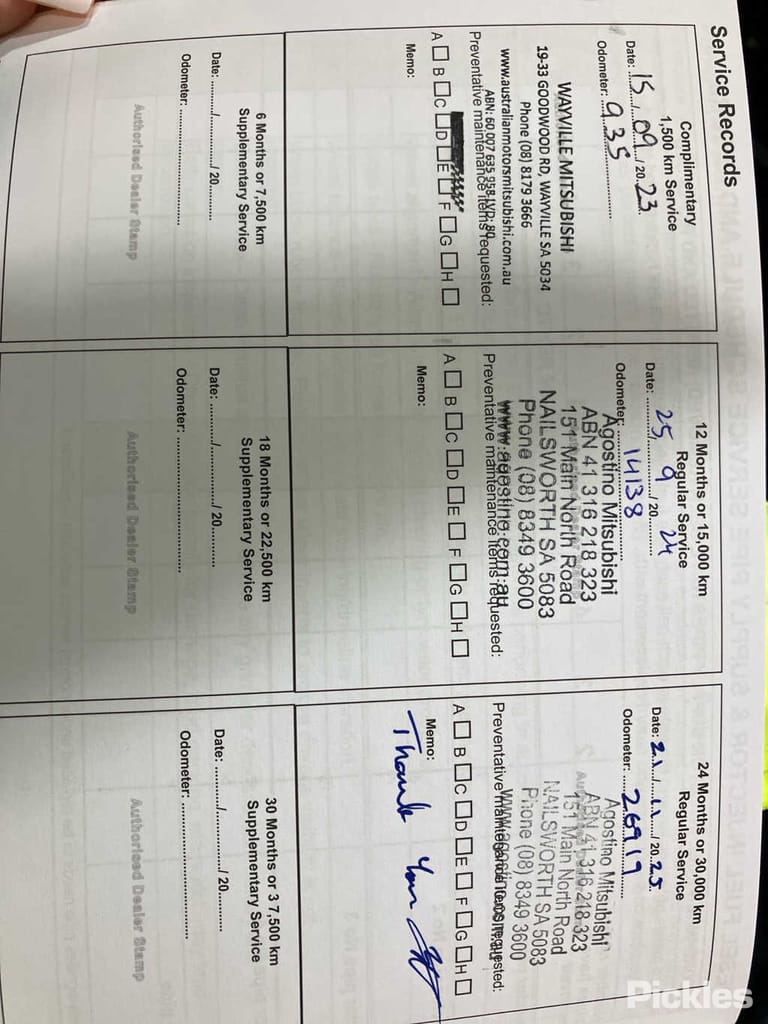 Service Records
Complimentary
1,500 km Service
Date: 15/09/2023
Odometer: 935
WAYVILLE MITSUBISHI
19-33 GOODWOOD RD, WAYVILLE SA 5034
Phone (08) 8179 3666
www.australianmotorsmitsubishi.com.au
ABN: 60 007 635 958 LVD: 80
Preventative maintenance items requested:
A B C D E F G H
Memo:
12 Months or 15,000 km
Regular Service
Date: 25/9/2024
Odometer: 14138
Agostino Mitsubishi
ABN 41 316 218 323
151 Main North Road
NAILSWORTH SA 5083
Phone (08) 8349 3600
www.agostino.com.au
Preventative maintenance items requested:
A B C D E F G H
Memo:
24 Months or 30,000 km
Regular Service
Date: 21/11/2025
Odometer: 26919
Agostino Mitsubishi
ABN 41 316 218 323
151 Main North Road
NAILSWORTH SA 5083
Phone (08) 8349 3600
www.agostino.com.au
Preventative maintenance items requested:
A B C D E F G H
Memo:
Thank You
6 Months or 7,500 km
Supplementary Service
Date: ........../........../ 20..........
Odometer: ..............................
Authorised Dealer Stamp
18 Months or 22,500 km
Supplementary Service
Date: ........../........../ 20..........
Odometer: ..............................
Authorised Dealer Stamp
30 Months or 3 7,500 km
Supplementary Service
Date: ........../........../ 20..........
Odometer: ..............................
Authorised Dealer Stamp
Pickles